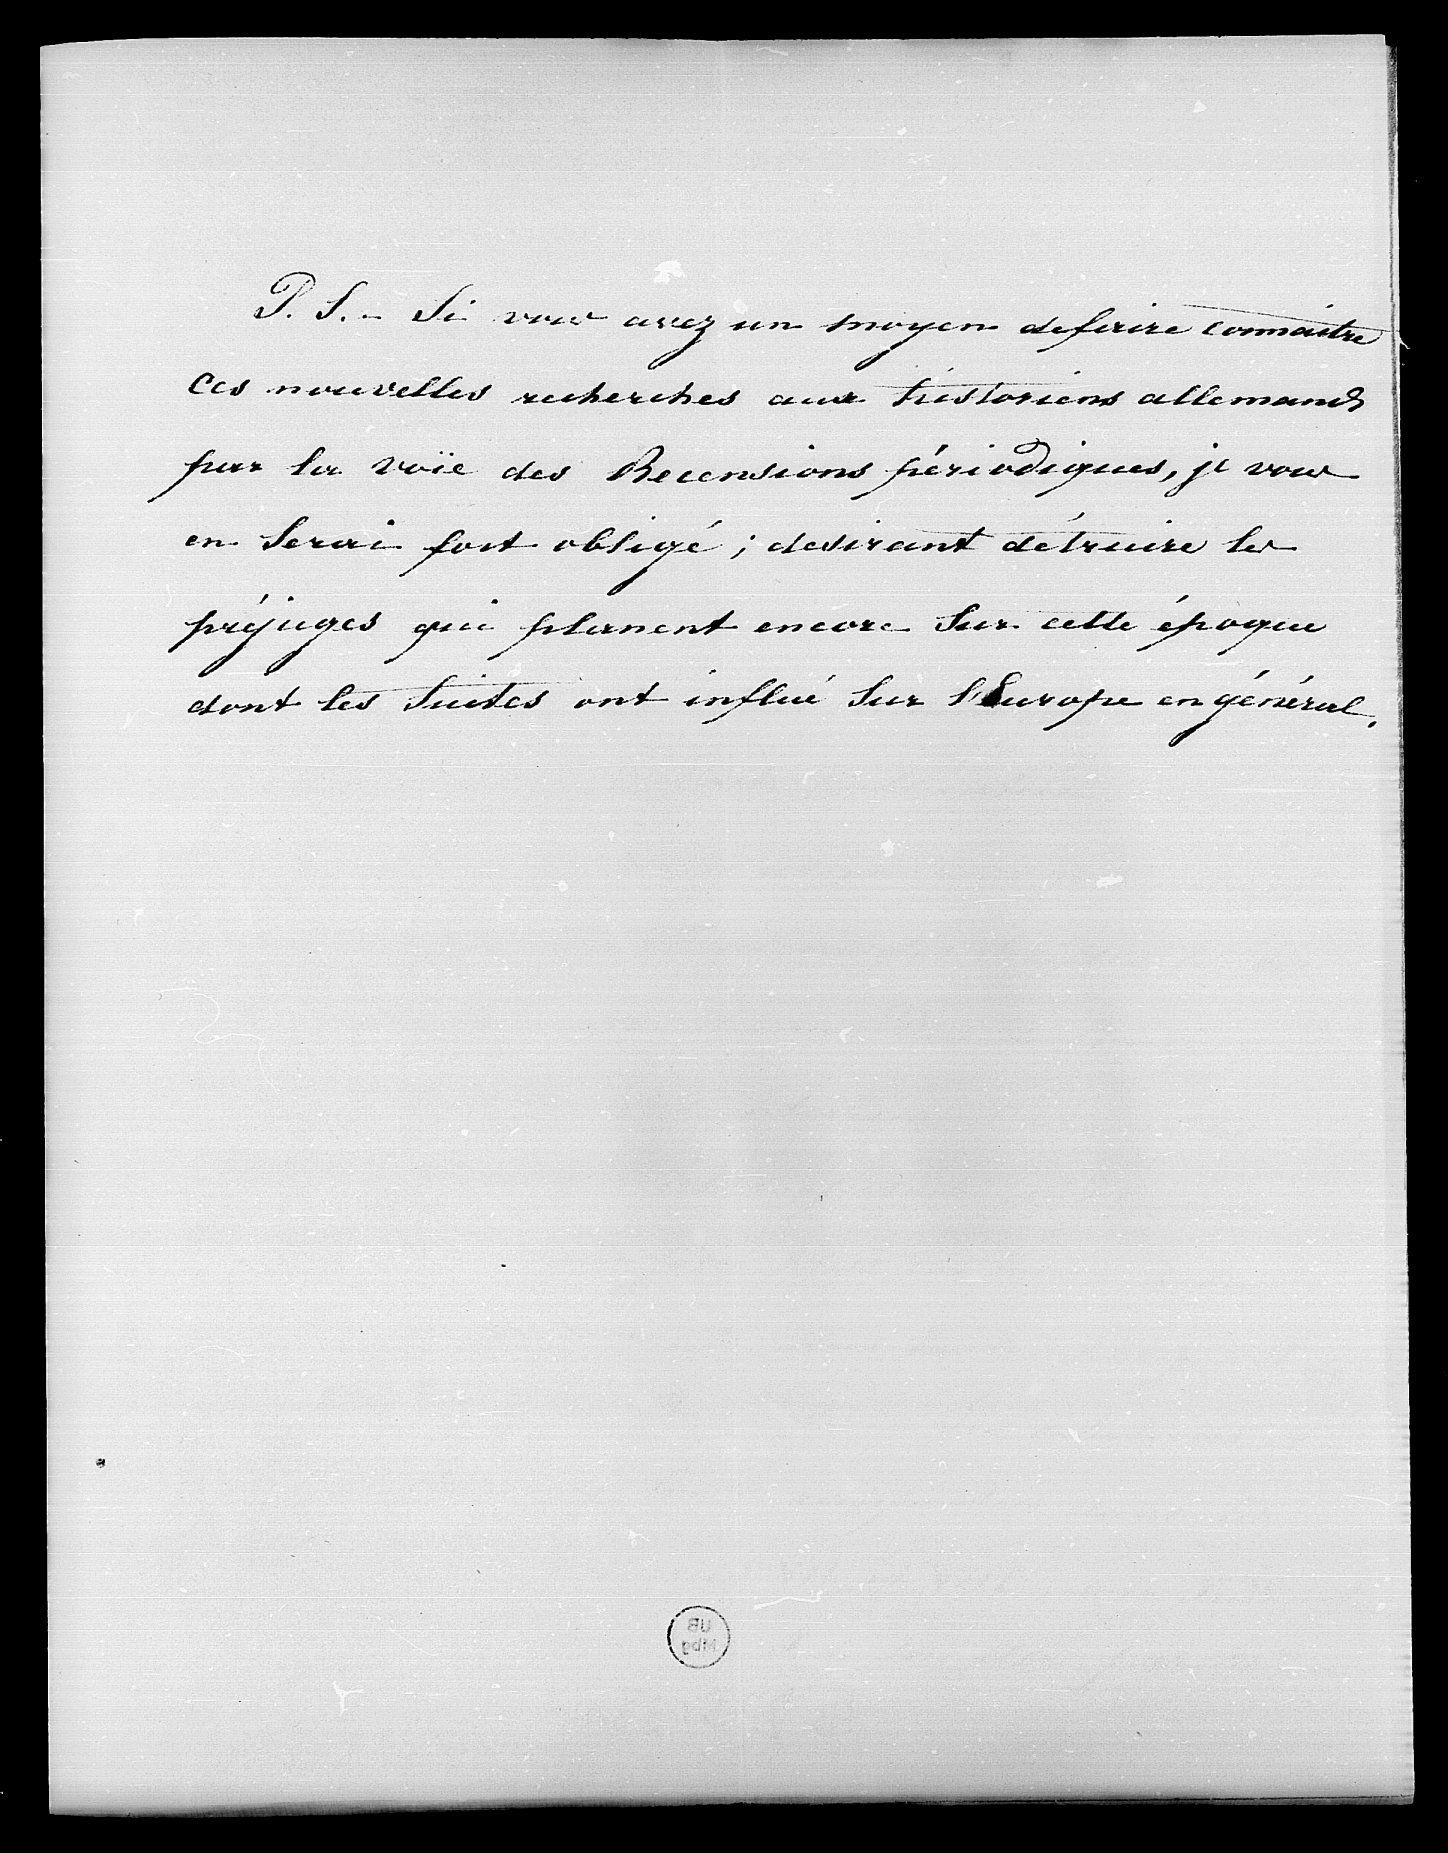 P. S. - Si vous avez un moyen de faire connaitre
ces nouvelles recherches aux historiens allemands
par la voïe des Recensions périodiques, je vous
en serai fort obligé ; desirant détruire les
préjuges qui planent encore sur cette époque
dont les suites ont influé sur l'Europe en général.
UB
Mbg